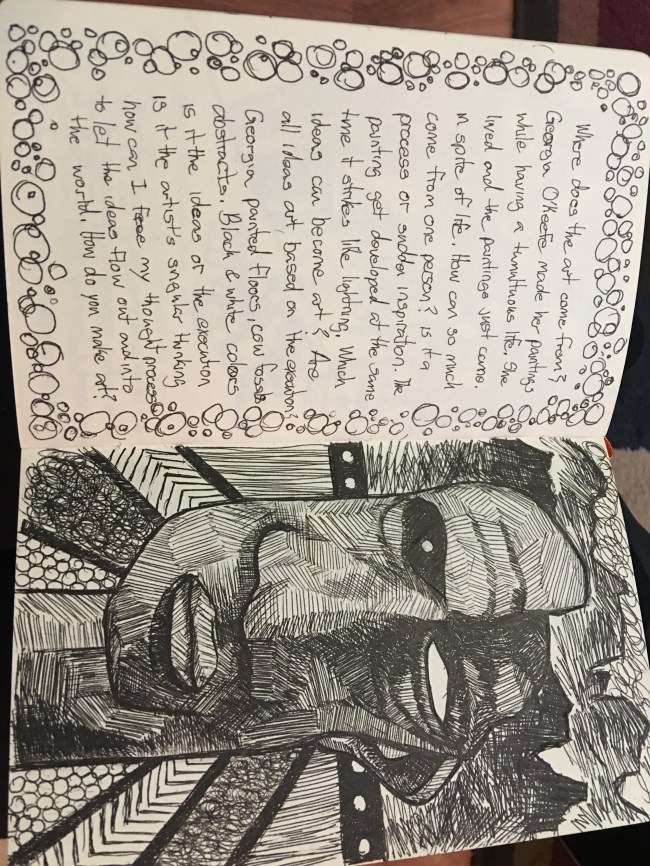 Where does the art come from?
Georgia O'Keefe made her paintings
while having a tumultuous life. She
lived and the paintings just came.
In spite of life. How can so much
come from one person? Is it a
process or sudden inspiration. The
painting get developed at the same
time it strikes like lightning. Which
ideas can become art? Are
all ideas art based on the execution?
Georgia painted floors, cow fossils
abstracts. Black & white colors
is it the ideas or the execution
is it the artist's singular thinking
how can I free my thought process
to let the ideas flow out and into
the world. How do you make art?